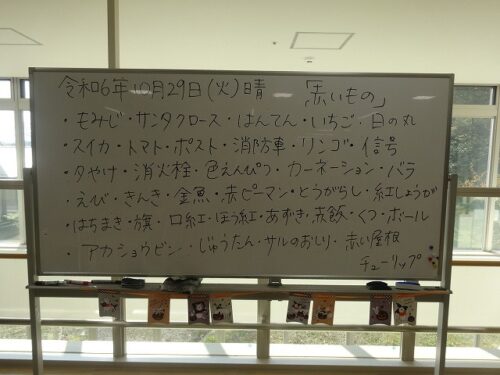 令和6年10月29日(火)晴 「赤いもの」
・もみじ・サンタクロース・はんてん・いちご・日の丸
・スイカ・トマト・ポスト・消防車・リンゴ・信号
・夕やけ・消火栓・色えんぴつ・カーネーション・バラ
・えび・きんき・金魚・赤ピーマン・とうがらし・紅しょうが
・はちまき・旗・口紅・ほう紅・あずき・赤飯・くつ・ボール
・アカショウビン・じゅうたん・サルのおしり・赤い屋根
チューリップ